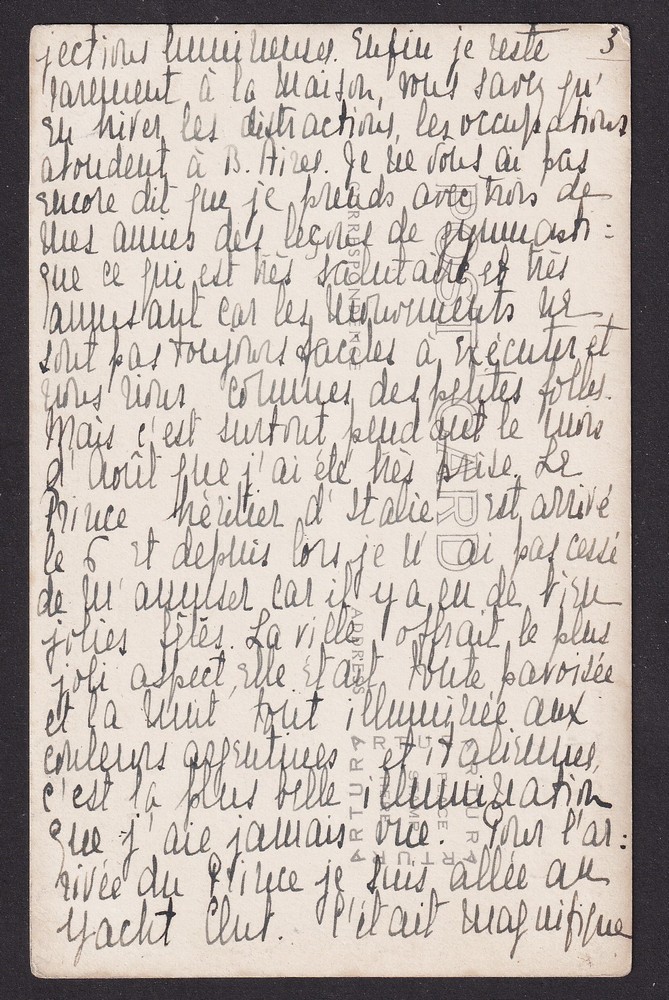 3
jections lumineuses. Enfin je reste
rarement à la maison, vous savez qu'
en hiver les distractions, les occupations
abondent à B. Aires. Je ne vous ai pas
encore dit que je prends avec trois de
mes amies des leçons de gymnasti:
que ce qui est très salutaire et très
amusant car les mouvements ne
sont pas toujours faciles à exécuter et
nous rions comme des petites folles.
Mais c'est surtout pendant le mois
d'Août que j'ai été très prise. Le
Prince héritier d'Italie est arrivé
le 6 et depuis lors je n'ai pas cessé
de m'amuser car il y a eu de bien
jolies fêtes. La ville offrait le plus
joli aspect, elle était toute pavoisée
et la nuit tout illuminée aux
couleurs argentines et italiennes,
c'est la plus belle illumination
que j'aie jamais vue. Pour l'ar:
rivée du Prince je suis allée au
Yacht Club. C'était magnifique
POST CARD
CORRESPONDENCE
ADDRESS
ARTURA
PLACE
STAMP
HERE